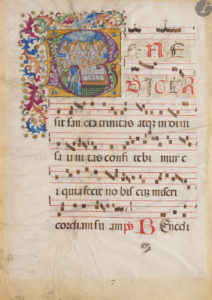 B ENE
DICTA
sit sancta trinitas atq; indiui
sa unitas confi tebi mur e
i quia fecit no bis cũ miseri
cordiam su am ps Benedi